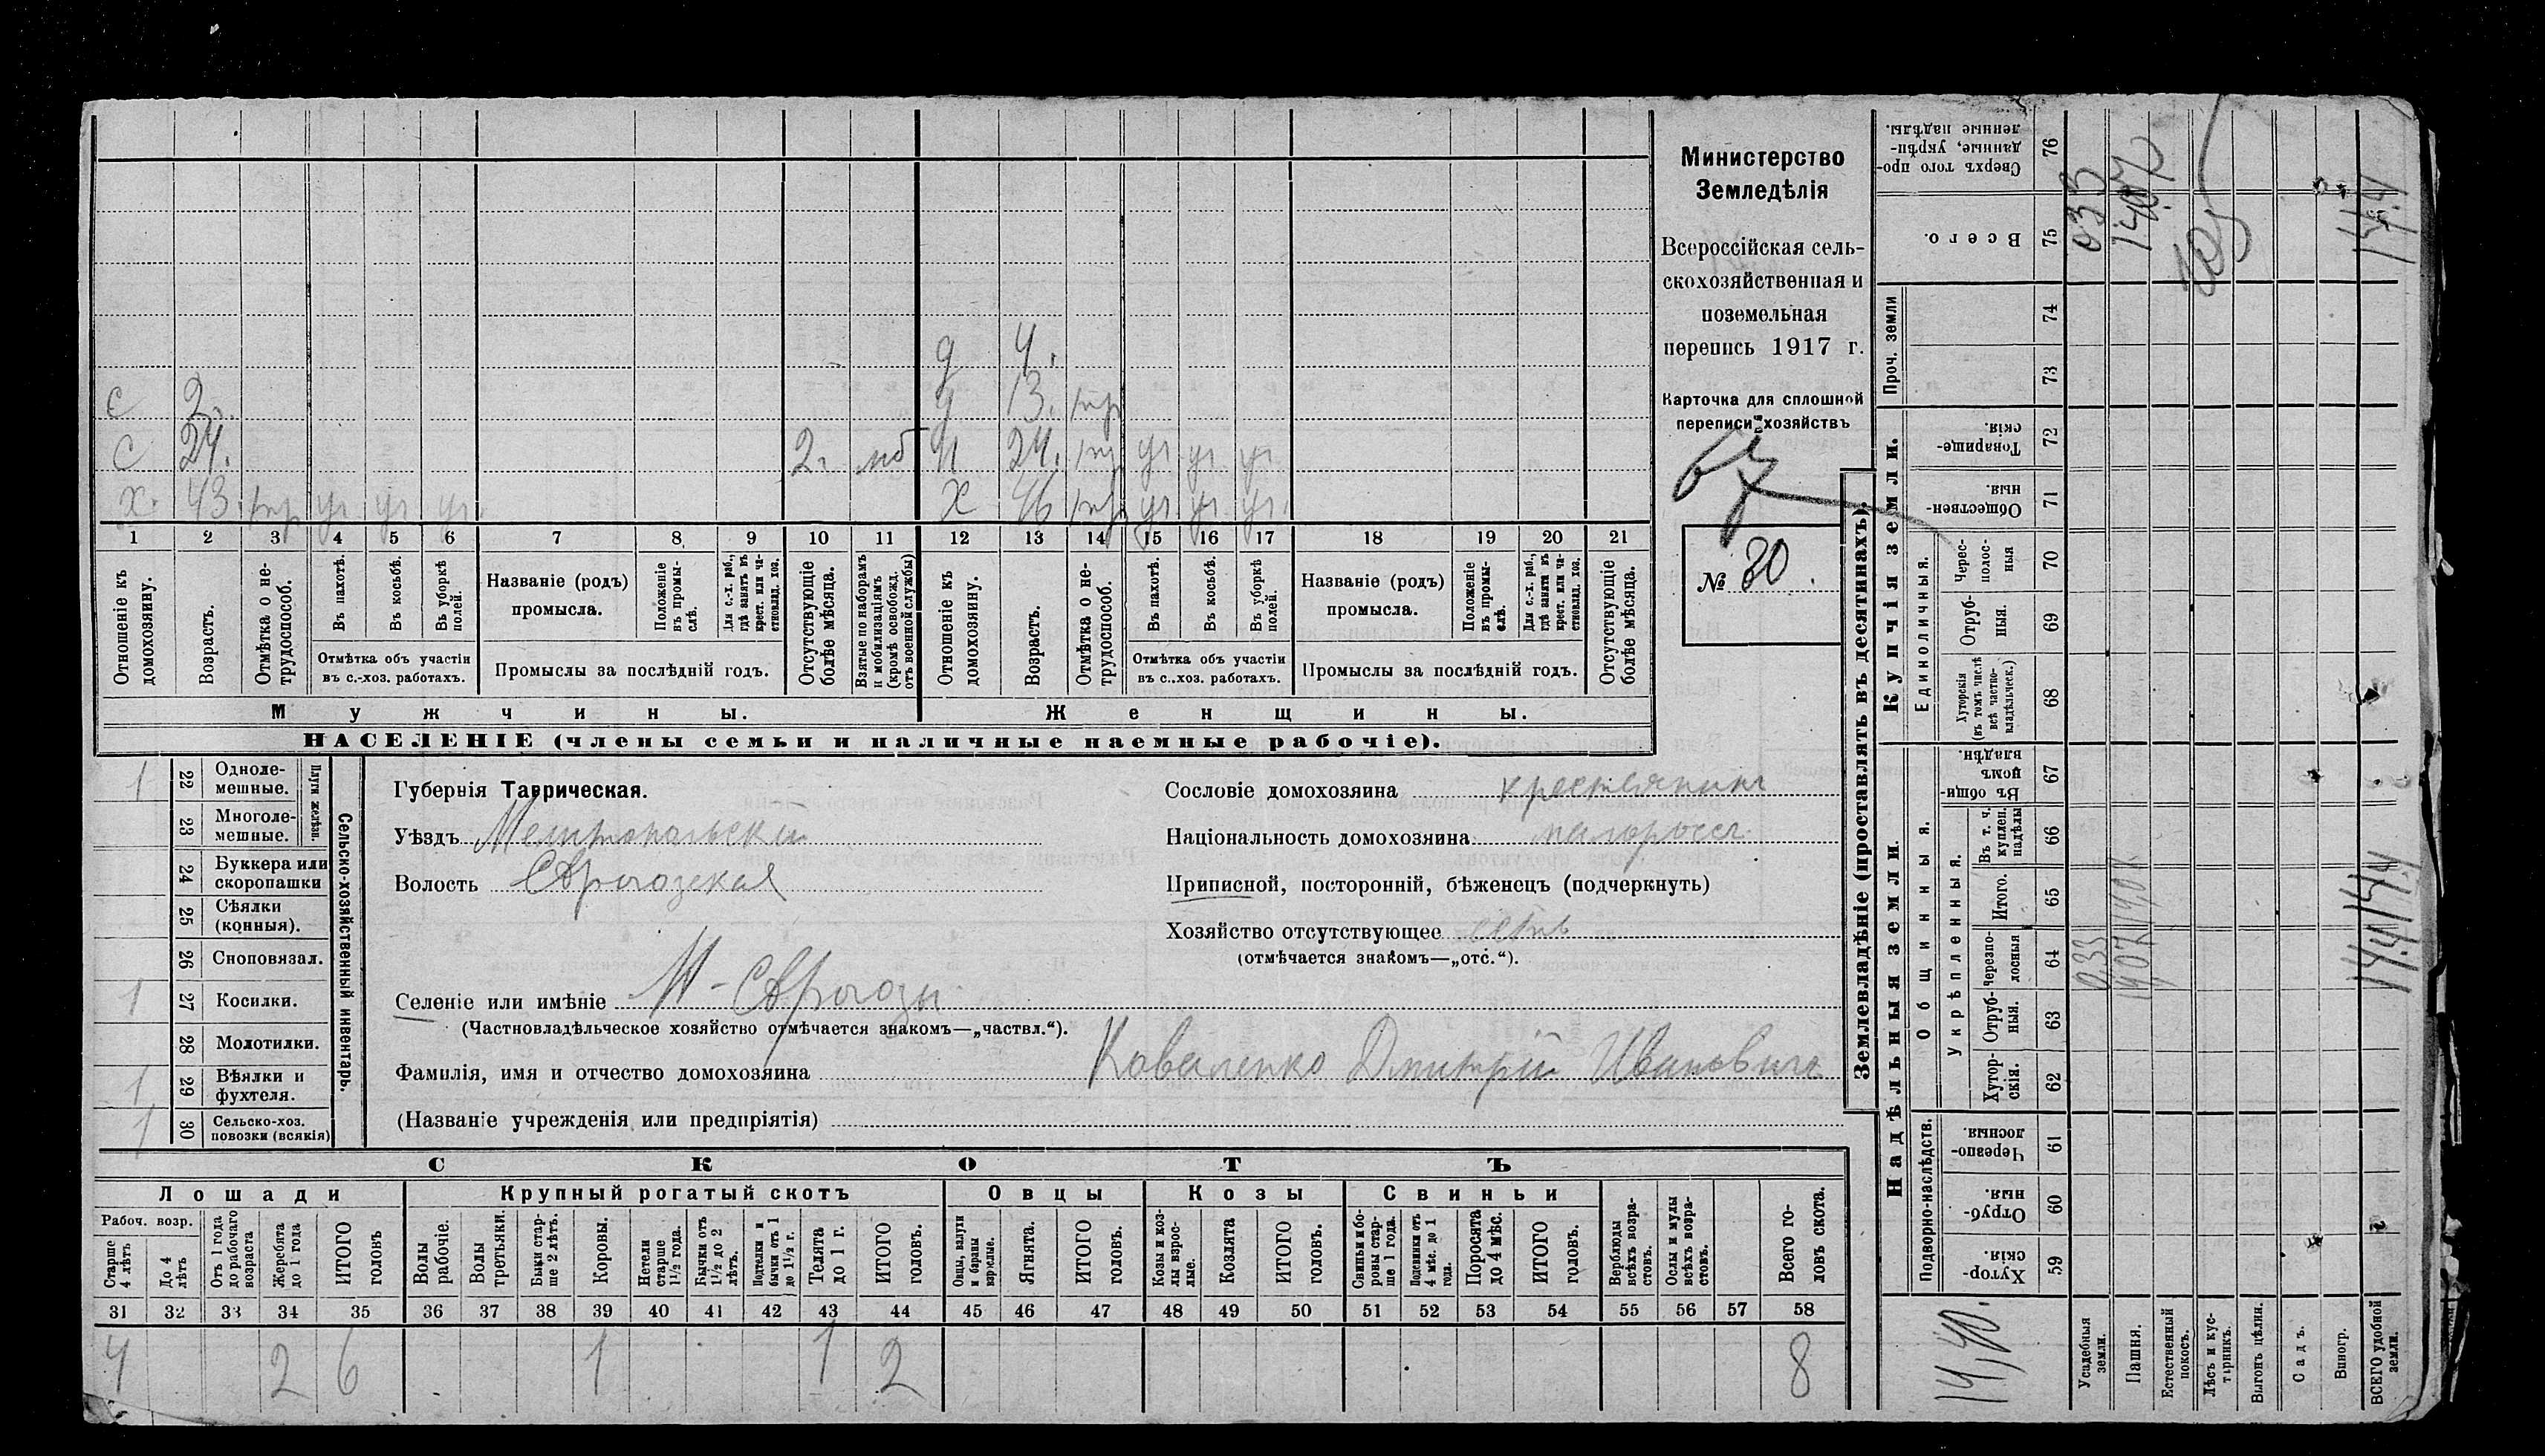 Министерство
Земледѣлія
Всероссійская сель-
скохозяйственная и
поземельная
перепись 1917 г.
Карточка для сплошной
переписи хозяйствъ
№ 30.
д 4.
с 2. д 13. нр
с 24. 2 г. мб н 24. нр уч уч уч
х. 43. нр уч уч уч. х 46 нр уч уч уч.
1 2 3 4 5 6 7 8 9 10 11 12 13 14 15 16 17 18 19 20 21
Отношеніе къ домохозяину.
Возрастъ.
Отмѣтка о не-трудоспособ.
Въ пахотѣ.
Въ косьбѣ.
Въ уборкѣ полей.
Отмѣтка объ участіи въ с.-хоз. работахъ.
Названіе (родъ) промысла.
Положеніе въ промы-слѣ.
Для с.-х. раб., гдѣ занятъ въ крест. или ча-стновлад. хоз.
Промыслы за послѣдній годъ.
Отсутствующіе болѣе мѣсяца.
Взятые по наборамъ и мобилизаціямъ (кромѣ освобожд. отъ военной службы)
Отношеніе къ домохозяину.
Возрастъ.
Отмѣтка о не-трудоспособ.
Въ пахотѣ.
Въ косьбѣ.
Въ уборкѣ полей.
Отмѣтка объ участіи въ с..хоз. работахъ.
Названіе (родъ) промысла.
Положеніе въ промы-слѣ.
Для с.-х. раб., гдѣ занята въ крест. или ча-стновлад. хоз.
Промыслы за послѣдній годъ.
Отсутствующіе болѣе мѣсяца.
Мужчины. Женщины.
НАСЕЛЕНІЕ (члены семьи и наличные наемные рабочіе).
Сельско-хозяйственный инвентарь.
Плуги желѣзн.
1 22 Одноле-мешные.
23 Многоле-мешные.
24 Буккера или скоропашки
25 Сѣялки (конныя).
26 Сноповязал.
1 27 Косилки.
28 Молотилки.
1 29 Вѣялки и фухтеля.
1 30 Сельско-хоз. повозки (всякія)
Губернія Таврическая.
Уѣздъ Мелитопольски
Волость
Селеніе или имѣніе
(Частновладѣльческое хозяйство отмѣчается знакомъ—„частвл.“).
Фамилія, имя и отчество домохозяина Коваленко Дмитрій Ивановичъ
(Названіе учрежденія или предпріятія)
Сословіе домохозяина крестьянинъ
Національность домохозяина малороссъ
Приписной, посторонній, бѣженецъ (подчеркнуть)
Хозяйство отсутствующее
(отмѣчается знакомъ—„отс.“).
СКОТЪ
Лошади Крупный рогатый скотъ Овцы Козы Свиньи
Рабоч. возр.
Старше 4 лѣтъ
До 4 лѣтъ
Отъ 1 года до рабочаго возраста
Жеребята до 1 года
ИТОГО головъ
Волы рабочіе.
Волы третьяки.
Быки стар-ше 2 лѣтъ.
Коровы.
Нетели старше 1½ года.
Бычки отъ 1½ до 2 лѣтъ.
Подтелки и бычки отъ 1 до 1½ г.
Телята до 1 г.
ИТОГО головъ.
Овцы, валухи и бараны взрослые.
Ягнята.
ИТОГО головъ.
Козы и коз-лы взрос-лые.
Козлята
ИТОГО головъ.
Свиньи и бо-ровы стар-ше 1 года.
Подсвинки отъ 4 мѣс. до 1 года.
Поросята до 4 мѣс.
ИТОГО головъ.
Верблюды всѣхъ возра-стовъ.
Ослы и мулы всѣхъ возра-стовъ.
Всего го-ловъ скота.
31 32 33 34 35 36 37 38 39 40 41 42 43 44 45 46 47 48 49 50 51 52 53 54 55 56 57 58
4 2 6 1 1 2 8
Землевладѣніе (проставлять въ десятинахъ).
Надѣльныя земли. Купчія земли.
Подворно-наслѣдств.
Общинныя.
Укрѣпленныя.
Единоличныя.
Проч. земли
59 Хутор-скія.
60 Отруб-ныя.
61 Черезпо-лосныя.
62 Хутор-скія.
63 Отруб-ныя.
64 Черезпо-лосныя
65 Итого.
66 Въ т. ч. куплен. надѣлы
67 Въ общи-номъ владѣн.
68 Хуторскія (въ томъ числѣ всѣ частно-владѣльческ.)
69 Отруб-ныя.
70 Черес-полос-ныя
71 Обществен-ныя.
72 Товарище-скія.
73
74
75 Всего.
76 Сверхъ того про-данные, укрѣп-ленные надѣлы.
14,40.
Усадебныя земли. 0,33 033
Пашня. 14,07 14,07 14,07
Естественный покосъ.
Лѣсъ и кус-тарникъ.
Выгонъ цѣлин.
Садъ.
Виногр.
ВСЕГО удобной земли. 14.4 14.4 14.4